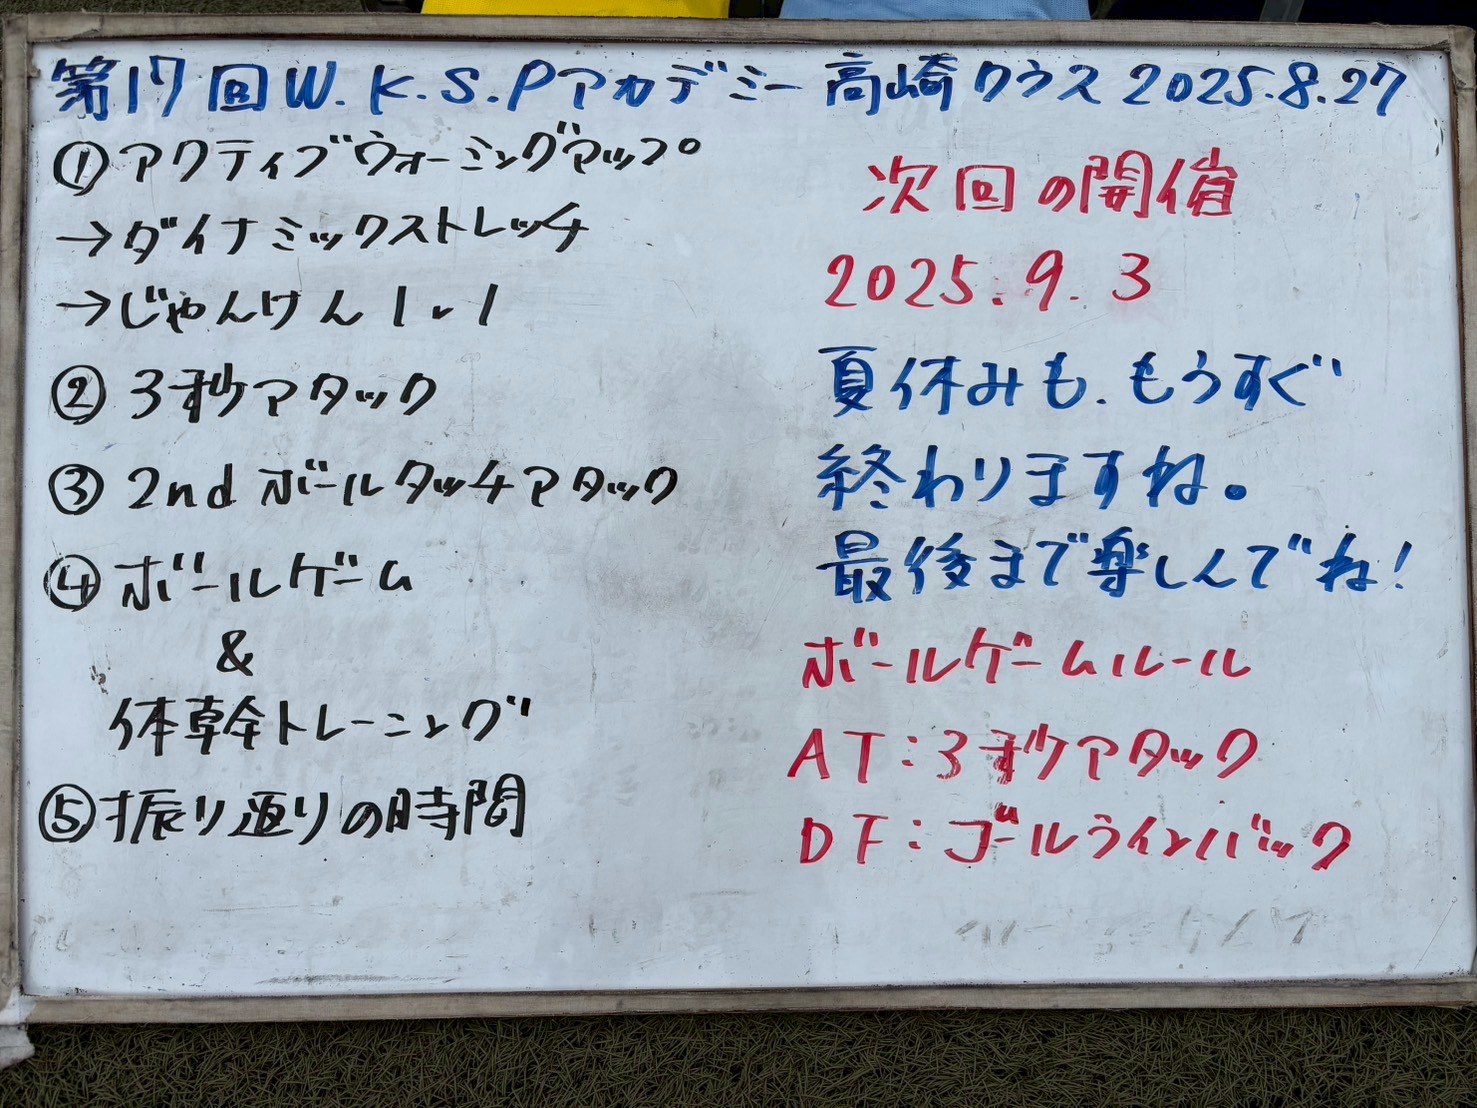 第17回W.K.S.Pアカデミー 高崎クラス 2025.8.27
①アクティブウォーミングアップ
→ダイナミックストレッチ
→じゃんけん1v1
②3秒アタック
③2ndボールタッチアタック
④ボールゲーム
&
体幹トレーニング
⑤振り返りの時間
次回の開催
2025.9.3
夏休みも、もうすぐ
終わりますね。
最後まで楽しんでね!
ボールゲームルール
AT:3秒アタック
DF:ゴールラインバック